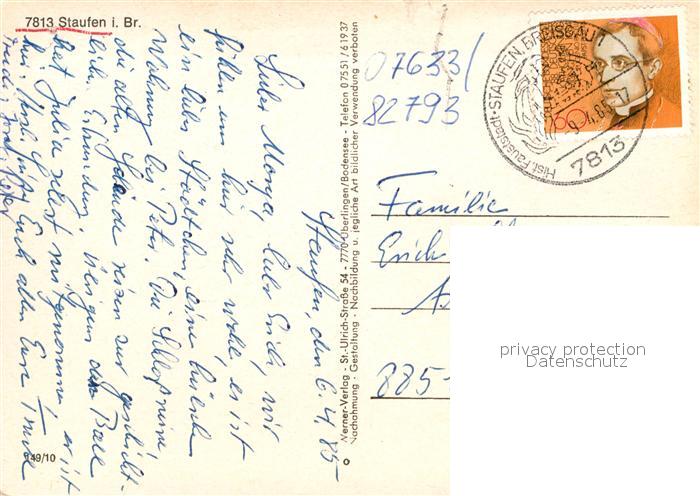 7813 Staufen i. Br.
Staufen, den 6.4.85
Liebe Monja, lieber Erich, wir
fühlen uns hier sehr wohl, es ist
ein liebes Städtchen, eine hübsche
Wohnung bei Peter. Die Schloßruine
die alten Gebäude reizen zur geschicht-
lichen Erkundung. Übrigens den Ball
hat Julia selbst mitgenommen, er ist
hier. Herzl. grüßt Euch allen Eure Trude
149/10
Werner-Verlag - St.-Ulrich-Straße 54 - 7770 Überlingen/Bodensee - Telefon 07551/61937
Nachahmung · Gestaltung · Nachbildung u. jegliche Art bildlicher Verwendung verboten
07633/
82793
Hist. Fauststadt · STAUFEN BREISGAU
9.4.85-17
7813
60
Familie
Erich
885-
privacy protection
Datenschutz